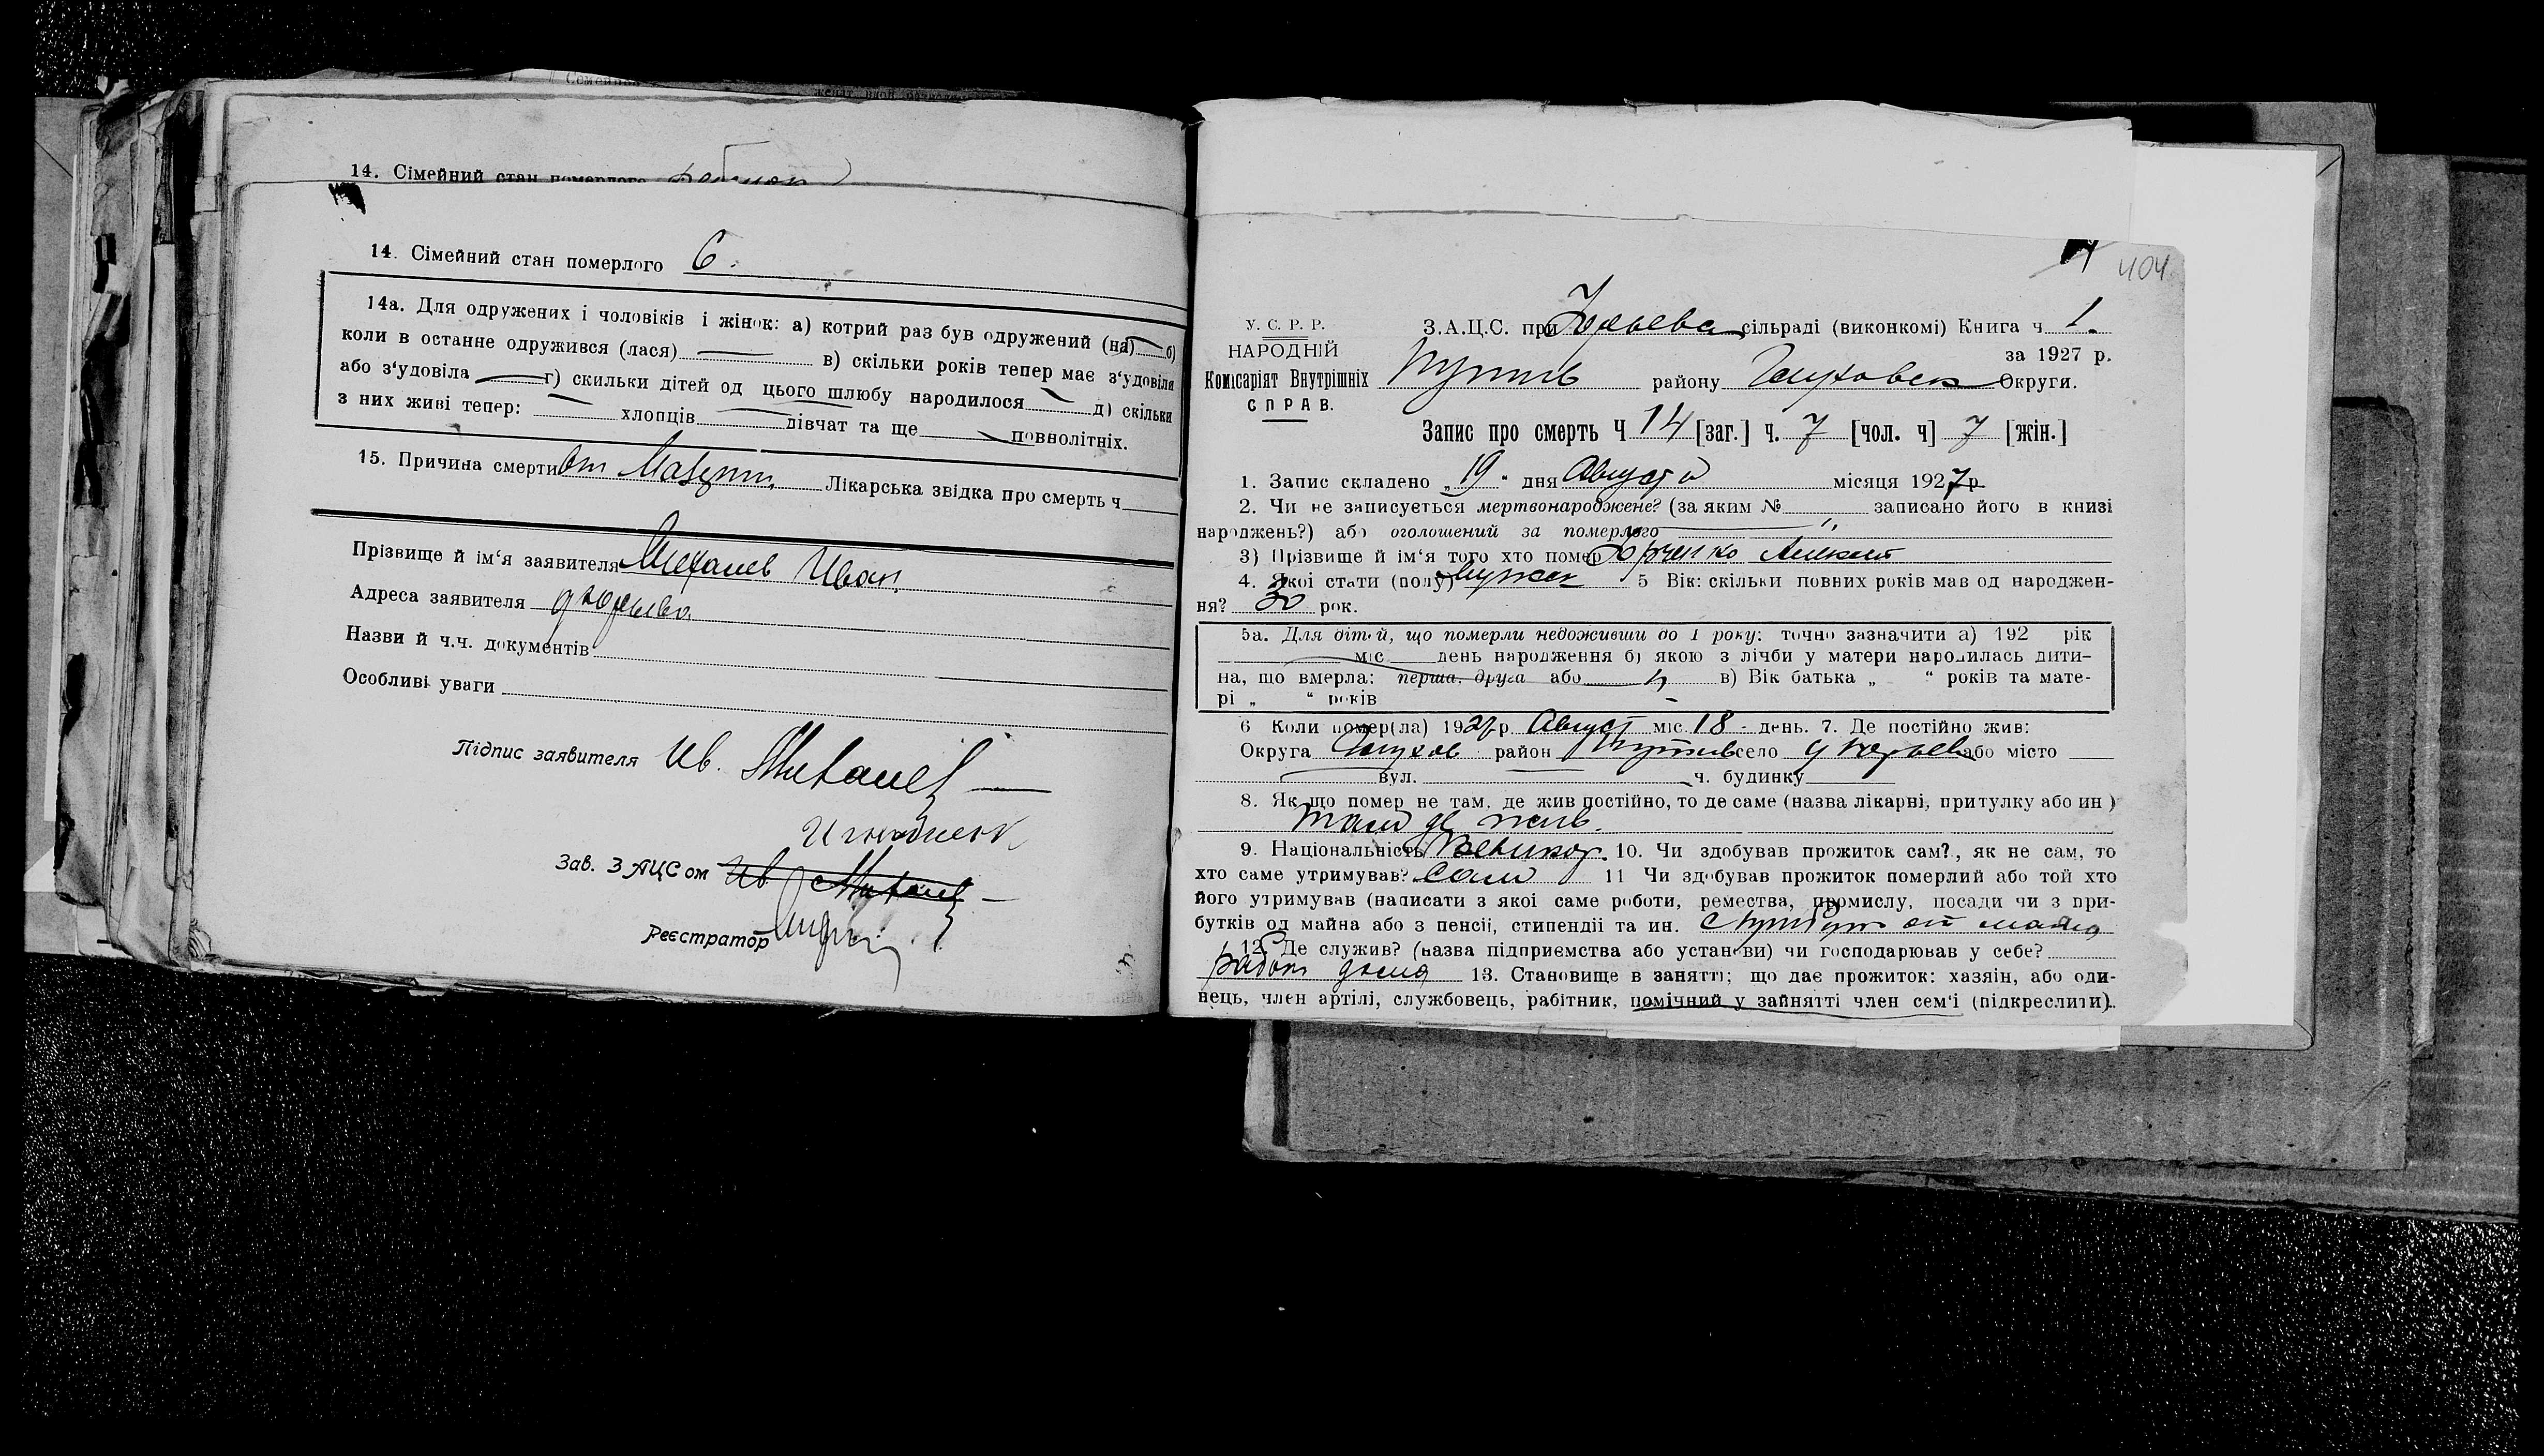 14. Сімейний стан померлого
14. Сімейний стан померлого 6.
14а. Для одружених і чоловіків і жінок: а) котрий раз був одружений (на) б)
коли в останне одружився (лася) в) скільки років тепер має з'удовіла
або з'удовіла г) скильки дітей од цього шлюбу народилося д) скільки
з них живі тепер: хлопців дівчат та ще повнолітніх.
15. Причина смерти От Лікарська звідка про смерть ч
Прізвище й ім'я заявителя Михалев Иван
Адреса заявителя
Назви й ч.ч. документів
Особливі уваги
Підпис заявителя Ив. Михалев
Зав. ЗАЦСом Ив. Михалев
Реєстратор
404
У. С. Р. Р.
НАРОДНІЙ
Комісаріят Внутрішніх
СПРАВ.
З.А.Ц.С. при Юрьева сільраді (виконкомі) Книга ч 1.
за 1927 р.
Путив району Глуховск Округи.
Запис про смерть Ч 14 [заг.] ч. 7 [чол. ч] 7 [жін.]
1. Запис складено „19" дня Августа місяця 1927 р
2. Чи не записується мертвонароджене? (за яким № записано його в книзі
народжень?) або оголошений за померлого
3) Прізвище й ім'я того хто помер Юрченко Алексей
4. Якої стати (полу) Мужск 5 Вік: скільки повних років мав од народжен-
ня? 30 рок.
5а. Для дітей, що померли недоживши до 1 року: точно зазначити а) 192 рік
міс день народження б) якою з лічби у матери народилась дити-
на, що вмерла: перша, друга або в) Вік батька „ " років та мате-
рі „ " років
6 Коли помер(ла) 1927 р Август міс. 18 - день. 7. Де постійно жив:
Округа Глухов район Путив село або місто
вул. ч. будинку
8. Як що помер не там, де жив постійно, то де саме (назва лікарні, притулку або ин )
там де жив.
9. Національність 10. Чи здобував прожиток сам?, як не сам, то
хто саме утримував? Сам 11 Чи здобував прожиток померлий або той хто
його утримував (написати з якої саме роботи, ремества, промислу, посади чи з при-
бутків од майна або з пенсії, стипендії та ин.
12. Де служив? (назва підприємства або установи) чи господарював у себе?
работ дома 13. Становище в занятті; що дає прожиток: хазяін, або оди-
нець, член артілі, службовець, рабітник, помічний у зайнятті член сем'ї (підкреслити).